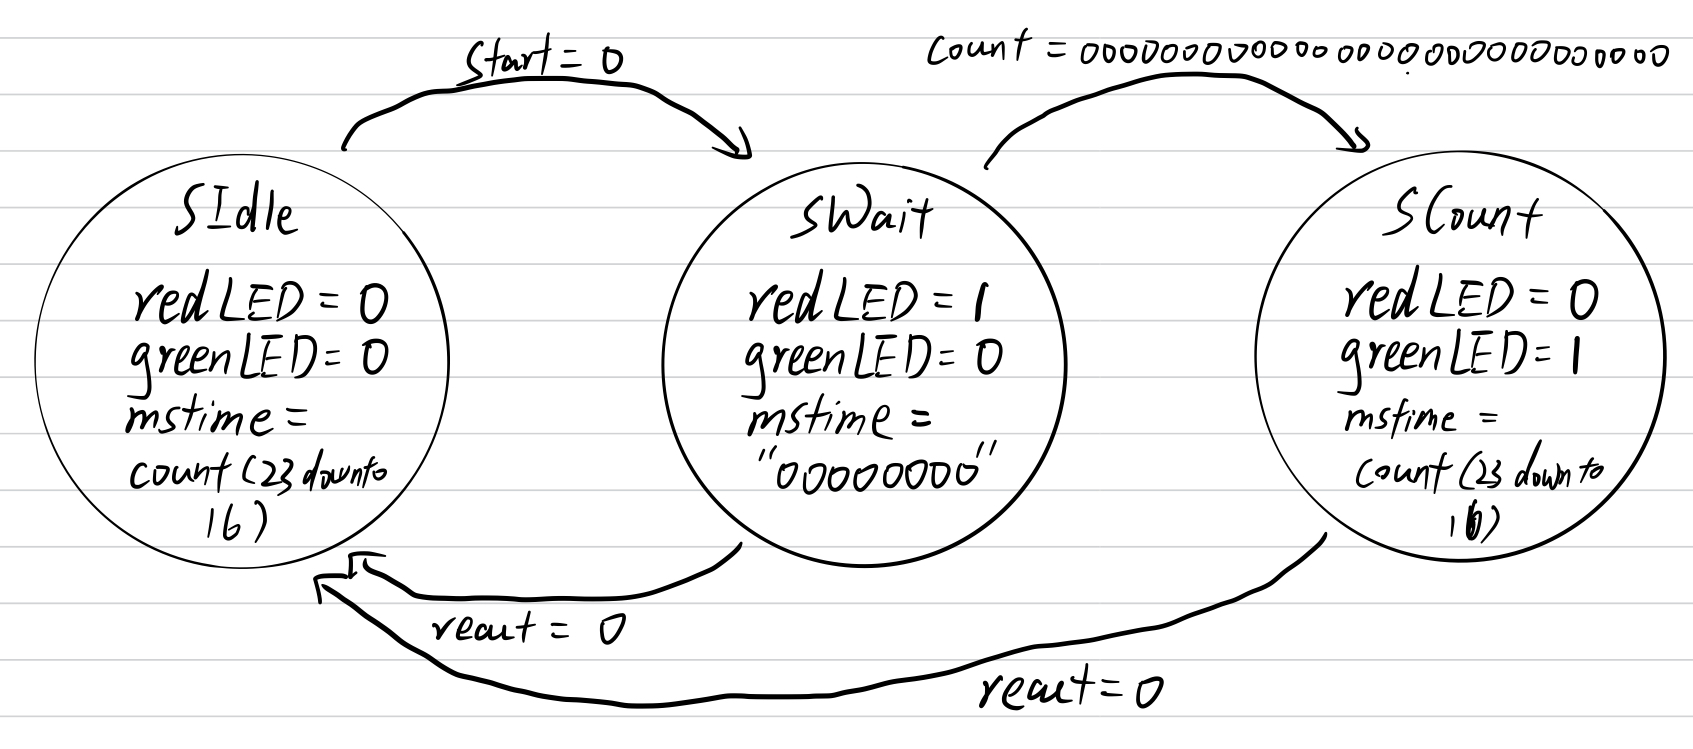 Start = 0
Count = 0000000000000000000000000000
SIdle
redLED = 0
greenLED = 0
mstime =
count (23 downto
16)
SWait
redLED = 1
greenLED = 0
mstime =
"00000000"
SCount
redLED = 0
greenLED = 1
mstime =
count (23 downto
16)
react = 0
react = 0